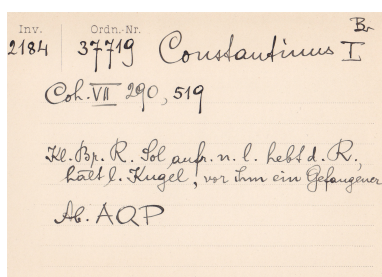 Inv. Ordn.-Nr. Br.
2184 37719 Constantinus I
Coh. VII 290, 519
Kl. Br. R. Sol aufr. n. l. hebt d. R.,
hält l. Kugel, vor ihm ein Gefangener
Ab. AQP